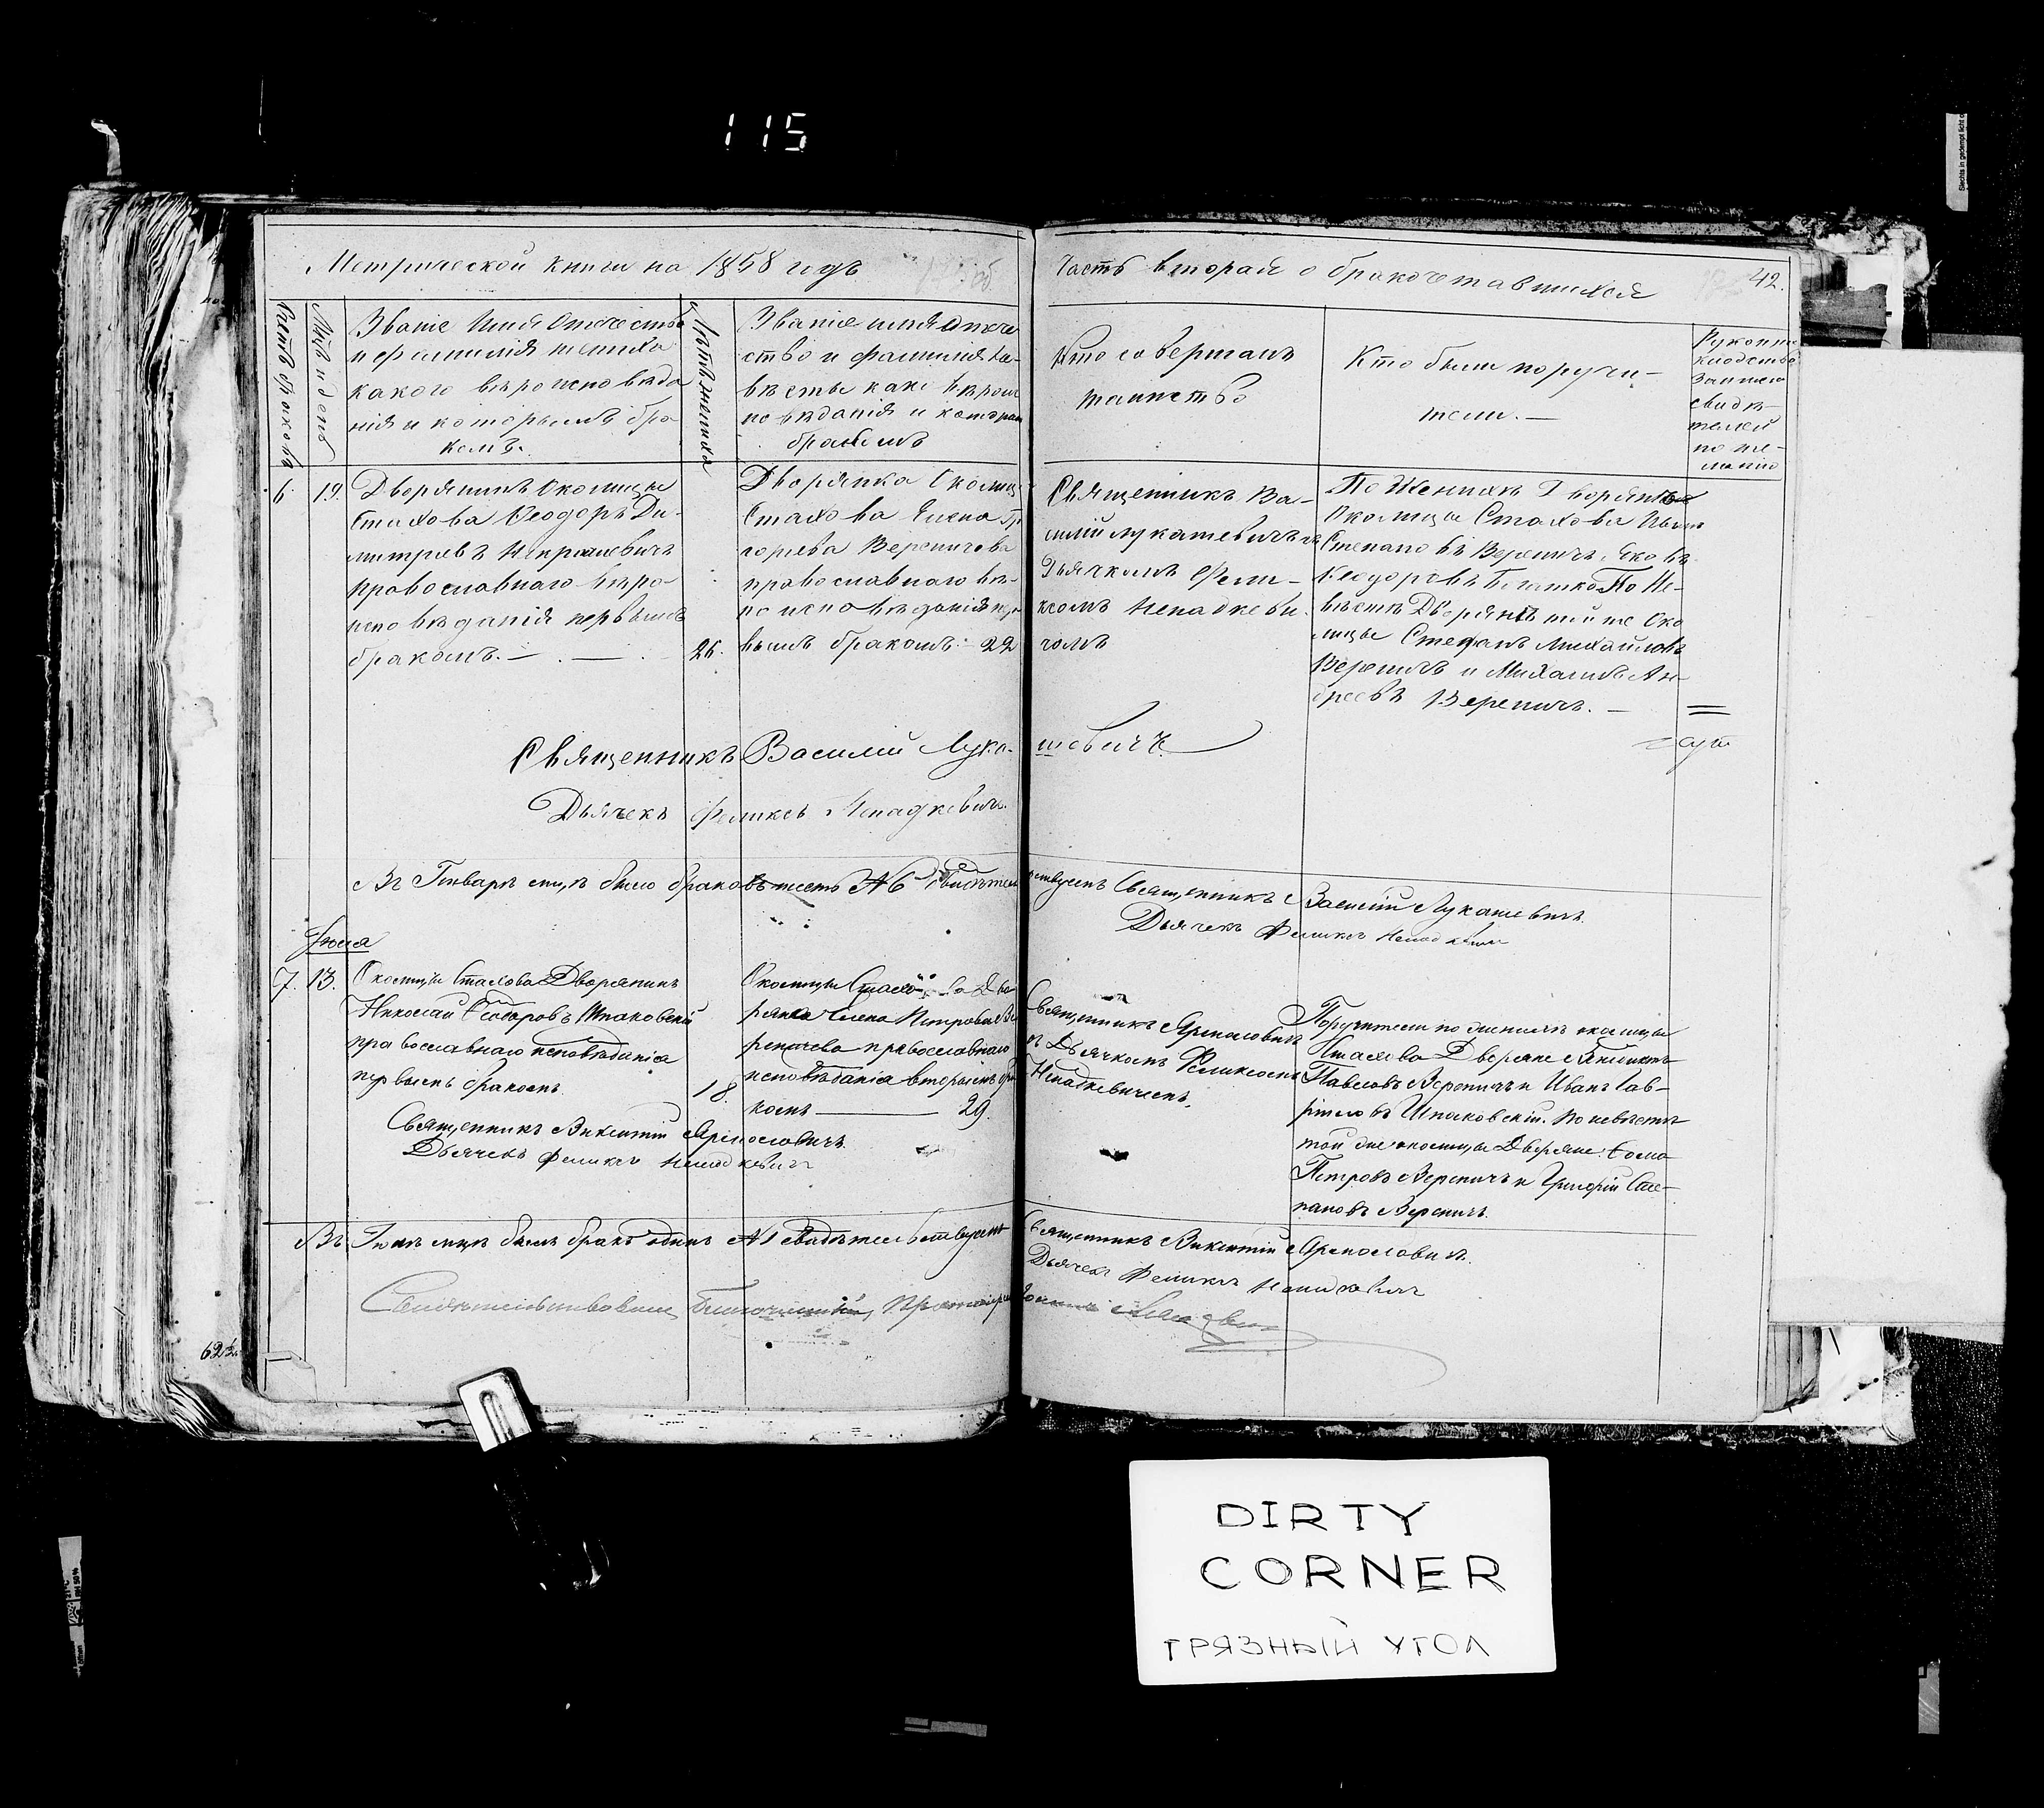 115
Метрической книги на 1858 годъ
Часть вторая о бракосочетавшихся
42.
Счетъ браковъ
Мѣс. и день
Званіе Имя Отчество
и фамилія жениха
какого вѣроисповѣда
нія и которымъ бра
комъ.
Лѣта жениха
Званіе имя отче
ство и фамилія не-
вѣсты какого вѣроис
повѣданія и которым
бракомъ
Кто совершалъ
таинство
Кто были поручи-
тели. —
Рукопри
кладство
записи
свидѣ-
телей
по же-
ланію
6. 19.
Дворянинъ Околицы
Стахова Ѳеодоръ Ди-
митріевъ
православнаго вѣро-
исповѣданія первымъ
бракомъ. — . — .
26.
Дворянка Околиц
Стахова Елена Гр
горьева Вереничева
православнаго вѣ-
роисповѣданія пер
вымъ бракомъ. — 22
Священникъ Ва-
силій Лукашевичъ съ
Дьячкомъ Фели-
ксомъ Ненадкеви
чомъ
По Женихѣ Дворяне
Околицы Стахова Иванъ
Степановъ Вереничъ, Яковъ
Ѳеодоровъ По Не-
вѣстѣ Дворяне той же Око
лицы Стефанъ Михайловъ
Вереничъ и Михаилъ Ан-
дреевъ Вереничъ. —
Священникъ Василій Лука- шевичъ
Дьячекъ Феликсъ Ненадкевичъ.
Въ Генварѣ мцѣ было браковъ шесть №6 Свидѣтель ствуемъ Священникъ Василій Лукашевичъ
Дьячекъ Феликсъ Ненадкевичъ
Іюля
7. 13.
Околицы Стахова Дворянинъ
Николай Ѳеодоровъ Шпаковскій
православнаго исповѣданія
первымъ бракомъ.
18.
Околицы Стахова Дво
рянка Елена Петрова Ве
реничева православнаго
исповѣданія вторымъ бра
комъ — 29.
Священникъ Ярносовичъ
съ Дьячкомъ Феликсомъ
Ненадкевичемъ.
Поручители по женихѣ околицы
Стахова Дворяне
Павловъ Вереничъ и Иванъ Гав-
ріиловъ Шпаковскій. По невѣстѣ
той же околицы Дворяне: Ѳома
Петровъ Вереничъ и Григорій Сте-
пановъ Вереничъ.
Священникъ Викентій
Дьячекъ Феликсъ Ненадкевичъ
Въ Іюлѣ мцѣ былъ бракъ одинъ №1 Свидѣтельствуемъ Священникъ Викентій
Дьячекъ Феликсъ Ненадкевичъ
Свидѣтельствовалъ Благочинный, Протоіерей
DIRTY
CORNER
ГРЯЗНЫЙ УГОЛ